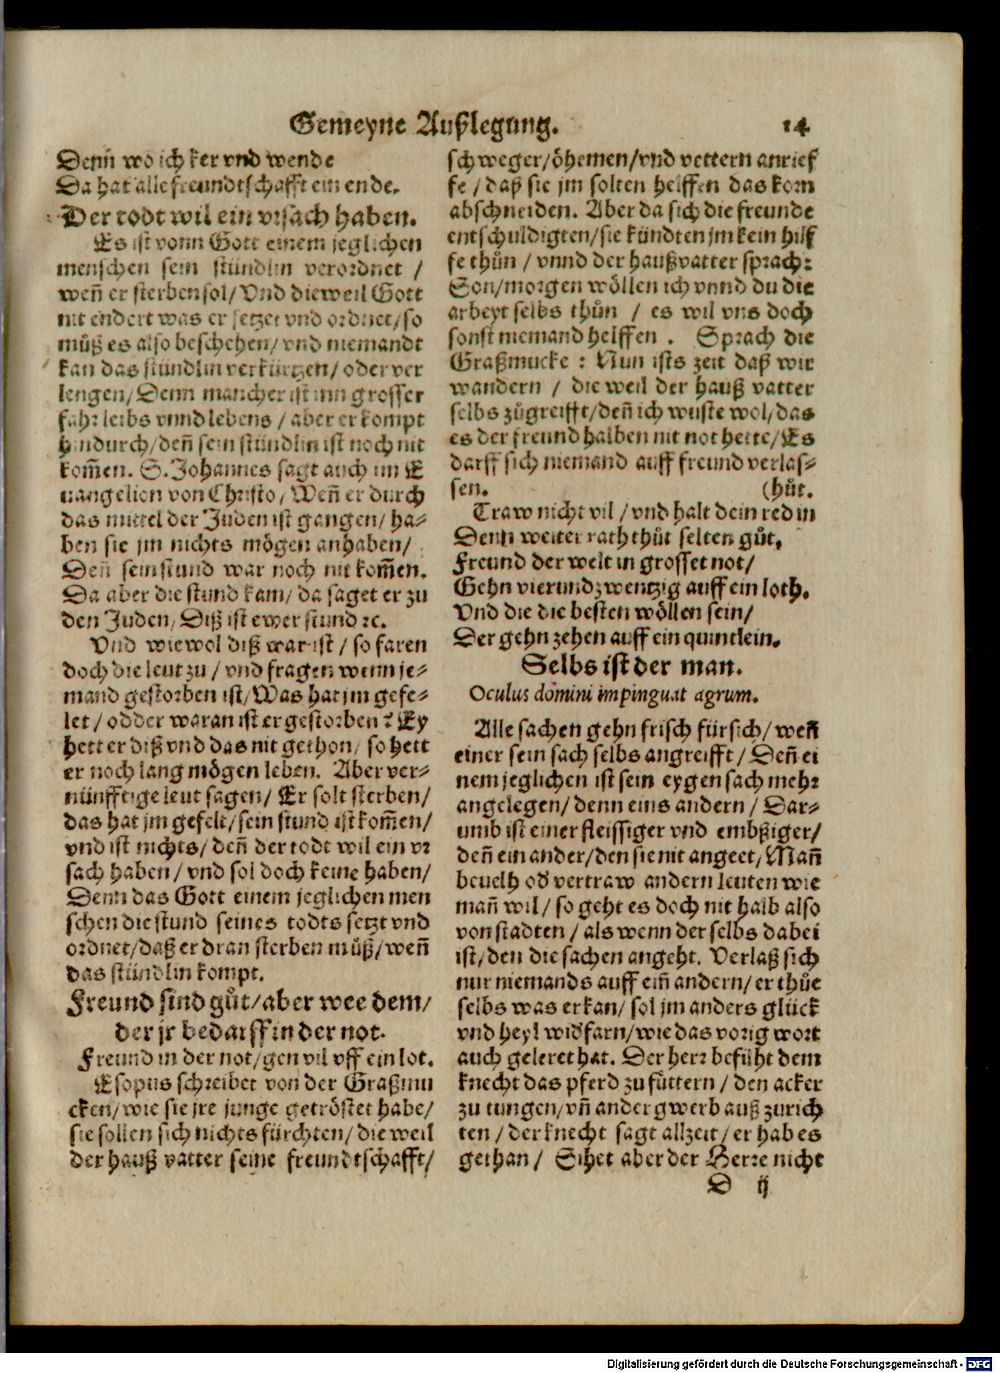 Gemeyne Außlegung. 14
Denn wo ich ker vnd wende
Da hat alle freundtschafft ein ende.
Der todt wil ein vrsach haben.
Es ist vonn Gott einem jeglichen
menschen sein stündlin verordnet /
weñ er sterben sol / Vnd dieweil Gott
nit endert was er setzet vnd ordnet / so
müß es also beschehen / vnd niemandt
kan das stündlin verkürtzen / oder ver
lengen / Denn mancher ist inn grosser
fahr leibs vnnd lebens / aber er kompt
hindurch / deñ sein stündlin ist noch nit
kom̃en. S. Johannes sagt auch im E
uangelion von Christo / Weñ er durch
das mittel der Juden ist gangen / ha⸗
ben sie jm nichts mögen anhaben /
Deñ sein stund war noch nit kom̃en.
Da aber die stund kam / da saget er zu
den Juden / Diß ist ewer stund ꝛc.
Vnd wiewol diß war ist / so faren
doch die leut zu / vnd fragen wenn je⸗
mand gestorben ist / Was hat jm gefe⸗
let / odder waran ist er gestorben? Ey
hett er diß vnd das nit gethon / so hett
er noch lang mögen leben. Aber ver⸗
nünfftige leut sagen / Er solt sterben /
das hat jm gefelt / sein stund ist kom̃en /
vnd ist nichts / deñ der todt wil ein vr
sach haben / vnd sol doch keine haben /
Denn das Gott einem jeglichen men
schen die stund seines todts setzt vnd
ordnet / daß er dran sterben müß / weñ
das stündlin kompt.
Freund sind gůt / aber wee dem /
der jr bedarff in der not.
Freund in der not / gen vil vff ein lot.
Esopus schreibet von der Graßmu
cken / wie sie jre junge getröstet habe /
sie sollen sich nichts fürchten / die weil
der hauß vatter seine freundtschafft /
schweger / öhemen / vnd vettern anrief
fe / daß sie jm solten helffen das korn
abschneiden. Aber da sich die freunde
entschuldigten / sie kündten jm kein hilf
fe thůn / vnnd der haußvatter sprach:
Son / morgen wöllen ich vnnd du die
arbeyt selbs thůn / es wil vns doch
sonst niemand helffen. Sprach die
Graßmucke: Nun ists zeit daß wir
wandern / die weil der hauß vatter
selbs zůgreifft / deñ ich wuste wol / das
es der freund halben nit not hette / Es
darff sich niemand auff freund verlas⸗
sen. (hůt.
Traw nicht vil / vnd halt dein red in
Denn weiter rath thůt selten gůt,
Freund der welt in grosset not /
Gehn vierundzwentzig auff ein loth.
Vnd die die besten wöllen sein /
Der gehn zehen auff ein quintlein.
Selbs ist der man.
Oculus domini impinguat agrum.
Alle sachen gehn frisch fürsich / weñ
einer sein sach selbs angreifft / Deñ ei
nem jeglichen ist sein eygen sach mehr
angelegen / denn eins andern / Dar⸗
umb ist einer fleissiger vnd embßiger /
deñ ein ander / den sie nit angeet / Mañ
beuelh od' vertraw andern leuten wie
mañ wil / so geht es doch nit halb also
von stadten / als wenn der selbs dabei
ist / den die sachen angeht. Verlaß sich
nur niemands auff eiñ andern / er thüe
selbs was er kan / sol jm anders glück
vnd heyl wid'farn / wie das vorig wort
auch geleret hat. Der herr befiht dem
knecht das pferd zu füttern / den acker
zu tungen / vñ ander gwerb auß zurich
ten / der knecht sagt allzeit / er hab es
gethan / Sihet aber der Herre nicht
D ij
Digitalisierung gefördert durch die Deutsche Forschungsgemeinschaft - DFG